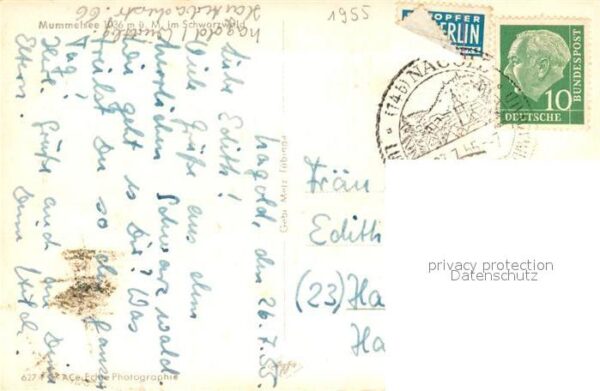 Mummelsee 1036 m ü. M. im Schwarzwald
1955
Nagold, den 26.7.55
Liebe Edith!
Viele Grüße aus dem
herrlichen Schwarzwald.
Wie geht es Dir? Was
treibst Du so den ganzen
Tag?
Herzl. Grüße auch an Deine
Eltern. Deine
Gebr. Metz Tübingen
NOTOPFER
BERLIN
(14b) NAGOLD
DEUTSCHE
BUNDESPOST
10
Edith
(23) Ha
Ha
privacy protection
Datenschutz
Photographie